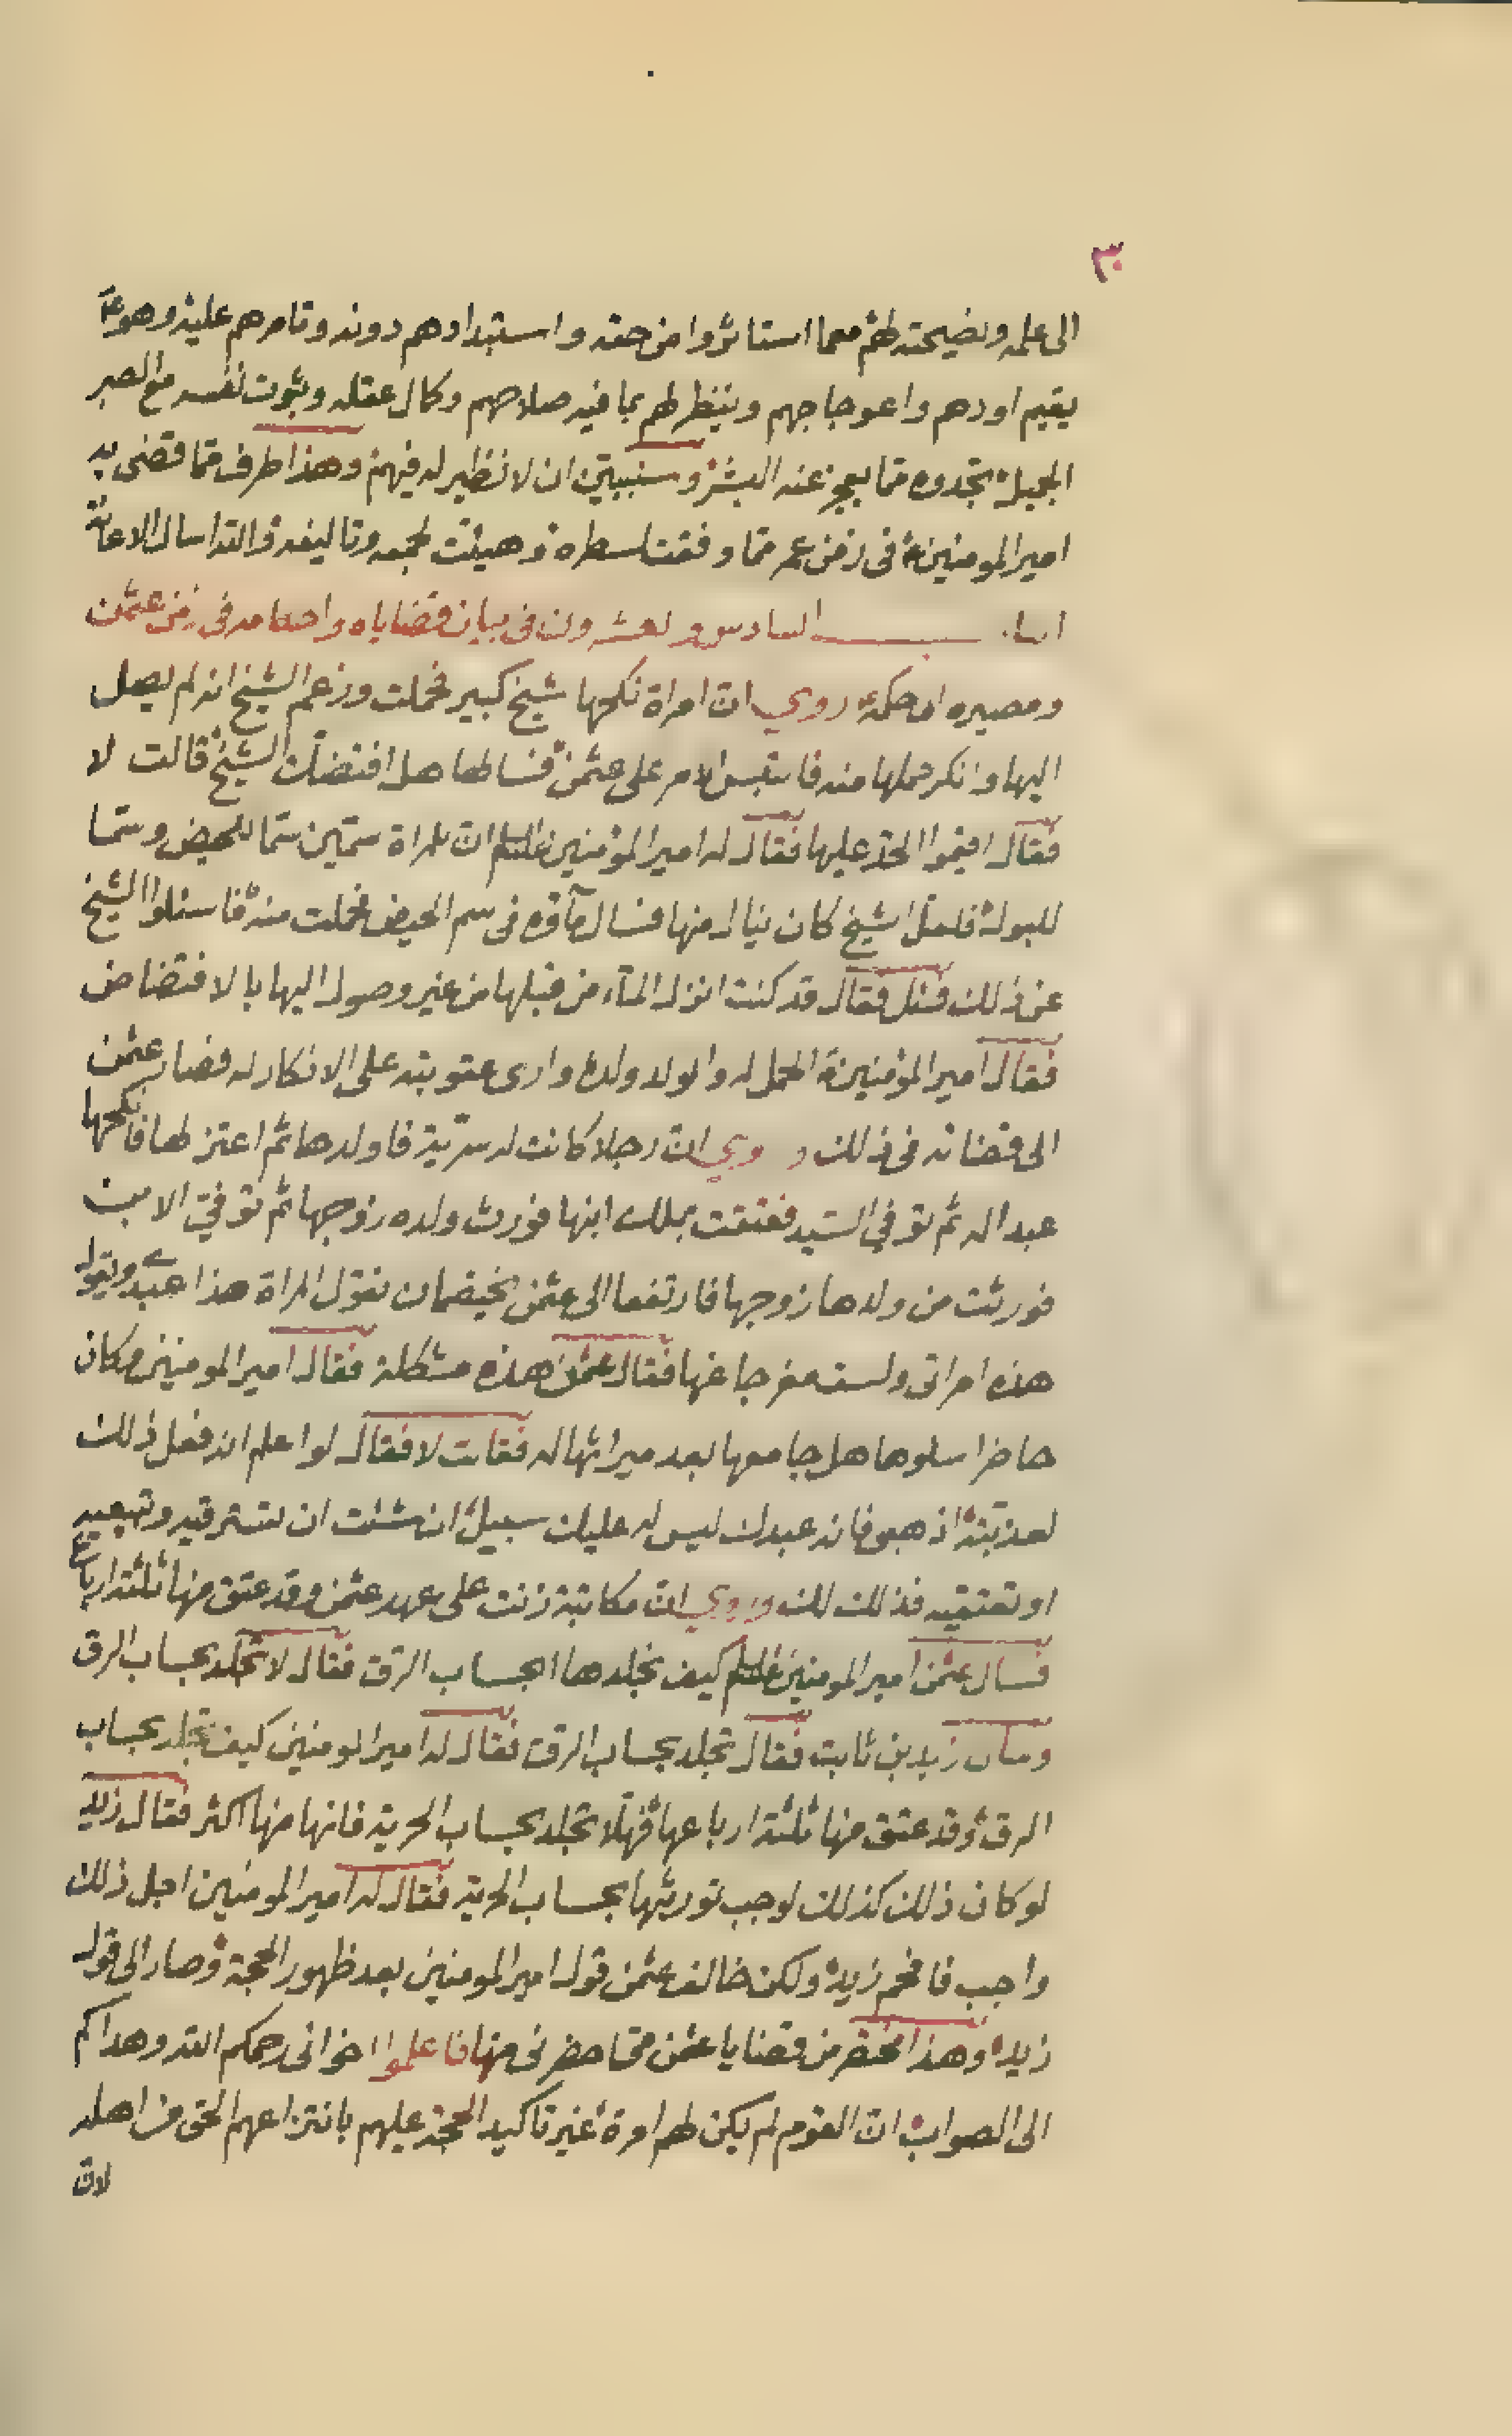 ٣٠
الى علمه ونضيحته لهم مما استاثروا من حقه واستبدادهم دونه وتامرهم عليه وهو ع
يقيم اودهم واعوجاجهم وينظر لهم بما فيه صلاحهم وكمال عقله وثبوت نفسه مع الصبر
الجميل تجدوه مما يعجز عنه البشر وسنبين ان لا نظير له فيهم وهذا طرف مما قضى به
امير المومنين في زمن عمر مما وفقت لسطره وهيئت لجمعه وتاليفه والله اسال الاعانة
البا ب السادس والعشرون في بيان قضاياه واحكامه في زمن عثمن
ومصيره الى حكمه روي ان امراة نكحها شيخ كبير فحملت وزعم الشيخ انه لم يصل
اليها وانكر حملها منه فالتبس الامر على عثمن فسالها هل افتضك الشيخ قالت لا
فقال اقيموا الحد عليها فقال له امير المؤمنين عليه السلم ان للمراة سمين سم للحيض وسم
للبول فلعل الشيخ كان ينال منها فسال مآؤه في سم الحيض فحملت منه فاسئلوا الشيخ
عن ذلك فسئل فقال قد كنت انزل المآء من قبلها من غير وصول اليها بالافتضاض
فقال امير المؤمنين الحمل له والولد ولده وارى عقوبته على الانكار له فصار عثمن
الى قضائه في ذلك وروي ان رجلا كانت له سرية فاولدها ثم اعتزلها فانكحها
عبدا له ثم توفي السيد فعتقت بملك ابنها فورث ولده زوجها ثم توفي الابن
فورثت من ولدها زوجها فارتفعا الى عثمن يختصمان تقول المراة هذا عبدي ويقول
هذه امراتي ولست مفرجا عنها فقال عثمن هذه مشكلة فقال امير المومنين وكان
حاضرا سلوها هل جامعها بعد ميراثها له فقالت لا فقال لو اعلم انه فعل ذلك
لعذبته اذهبي فانه عبدك ليس له عليك سبيل ان شئت ان تسترقيه وتبيعيه
او تعتقيه فذلك لك وروي ان مكاتبة زنت على عهد عثمن وقد عتق منها ثلثة ارباع
فسال عثمن امير المومنين عليه السلم كيف تجلدها ابحساب الرق فقال لا تجلد بحساب الرق
وسال زيد بن ثابت فقال تجلد بحساب الرق فقال له امير المومنين كيف تجلد بحساب
الرق وقد عتق منها ثلثة ارباعها فهلا تجلد بحساب الحرية فانها منها اكثر فقال زيد
لو كان ذلك كذلك لوجب توريثها بحساب الحرية فقال له امير المومنين اجل ذلك
واجب فافحم زيد ولكن خالف عثمن قول امير المومنين بعد ظهور الحجة وصار الى قول
زيد وهذا مختصر من قضايا عثمن مما حضرني منها فاعلموا اخواني رحمكم الله وهداكم
الى الصواب ان القوم لم يكن لهم امرة غير تاكيد الحجة عليهم بانتزاعهم الحق من اهله
لان